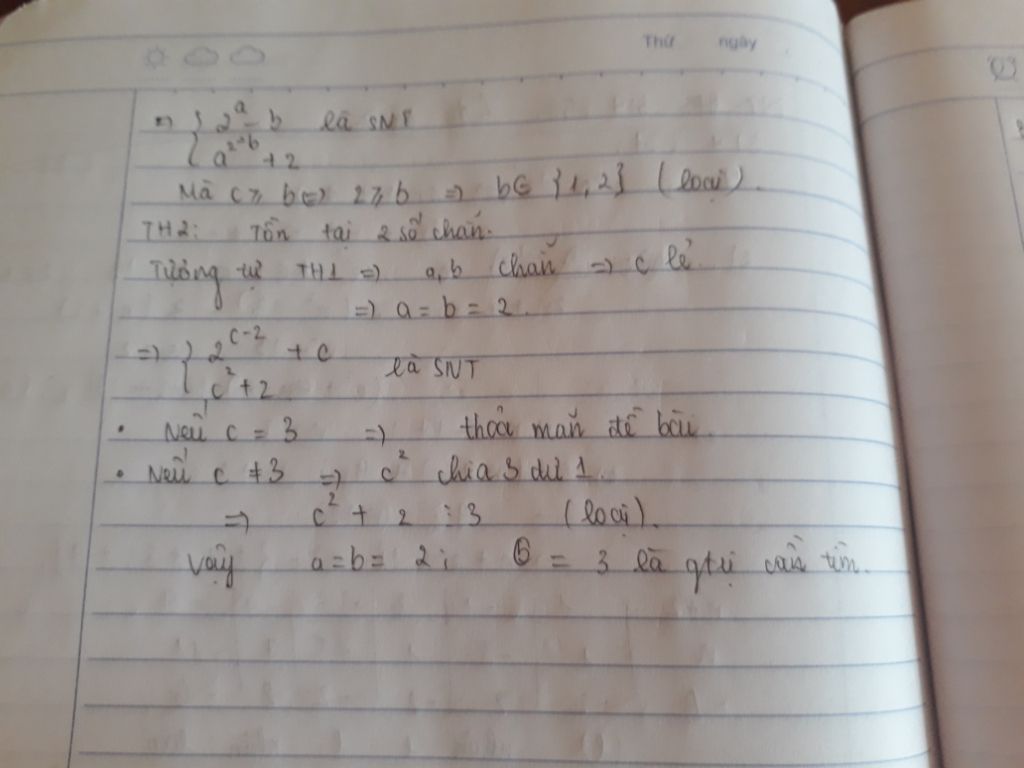 Thứ ngày
=> { 2^a - b là SNT
a^{2-b} + 2
Mà c ≥ b <=> 2 ≥ b => b ∈ {1, 2} (loại).
TH2: Tồn tại 2 số chẵn.
Tương tự TH1 => a, b chẵn => c lẻ
=> a = b = 2.
=> { 2^{c-2} + c là SNT
c^2 + 2
• Nếu c = 3 => thỏa mãn đề bài.
• Nếu c ≠ 3 => c^2 chia 3 dư 1.
=> c^2 + 2 ⋮ 3 (loại).
Vậy a = b = 2; = 3 là gtrị cần tìm.